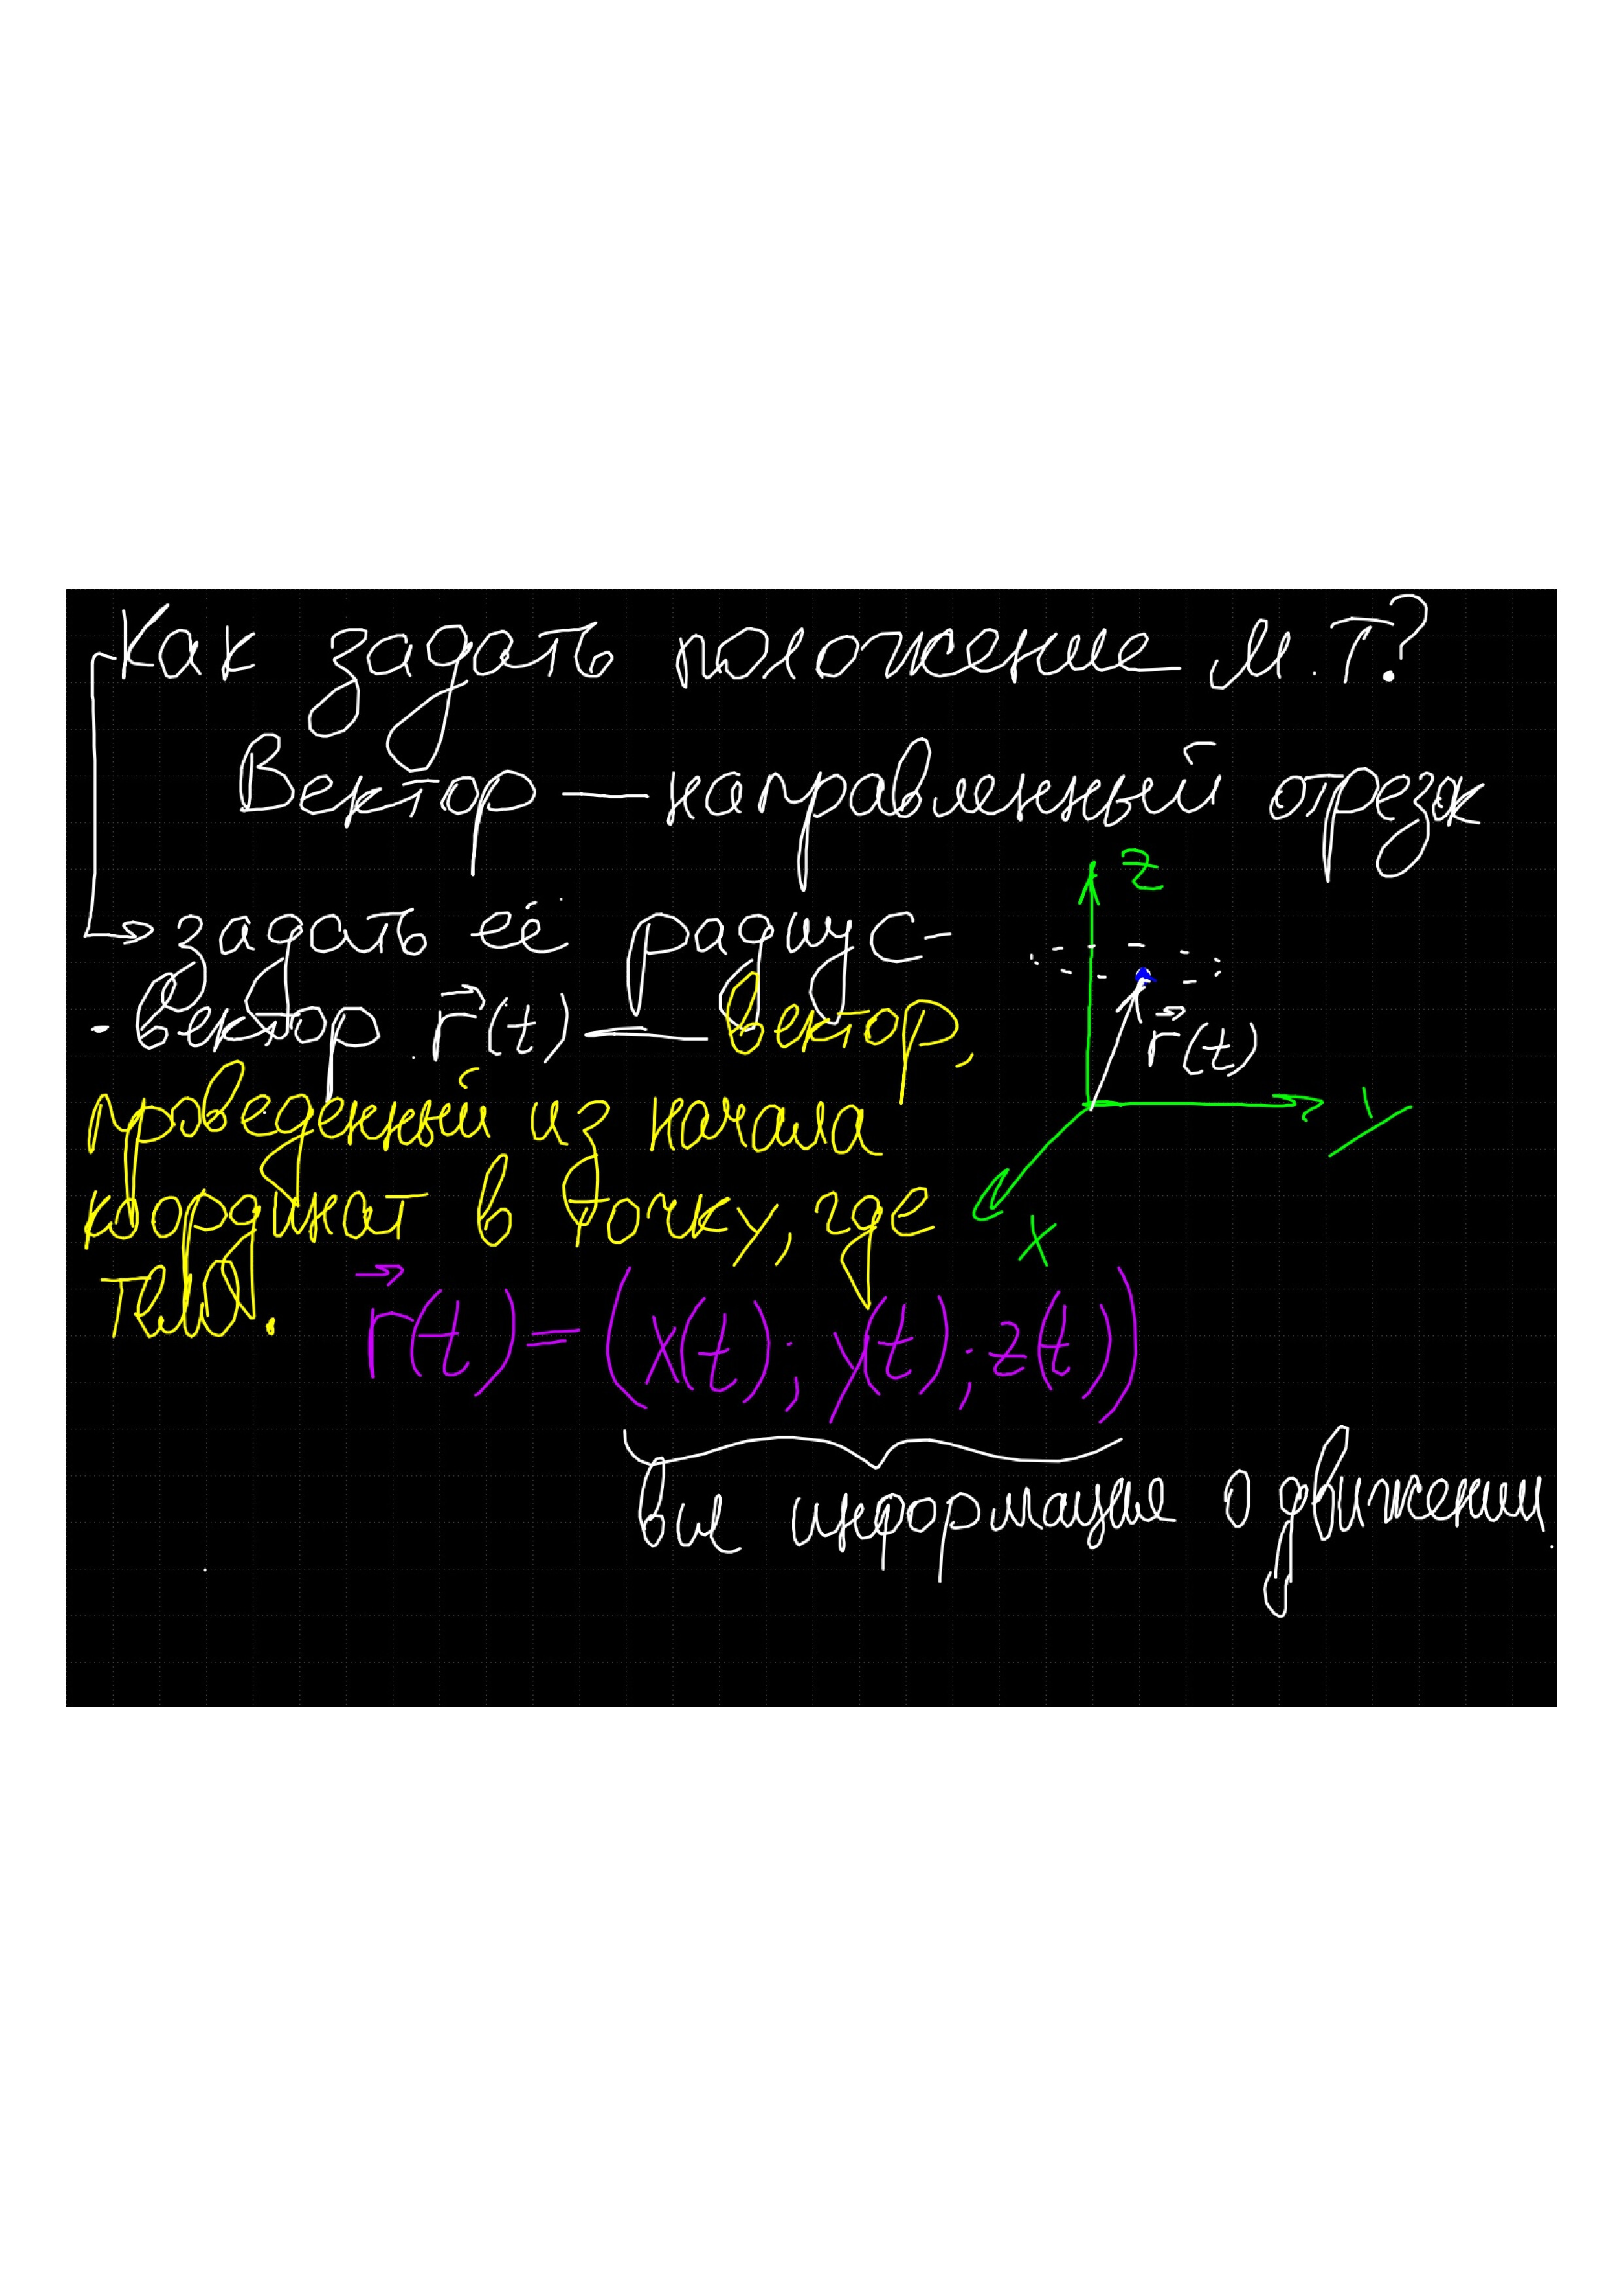 Как задать положение М.Т?
Вектор — направленный отрезок
задать её радиус-
-вектор r⃗(t) — вектор,
проведенный из начала
координат в точку, где
тело.
Z
r⃗(t)
Y
X
r⃗(t) = (x(t); y(t); z(t))
вся информация о движении